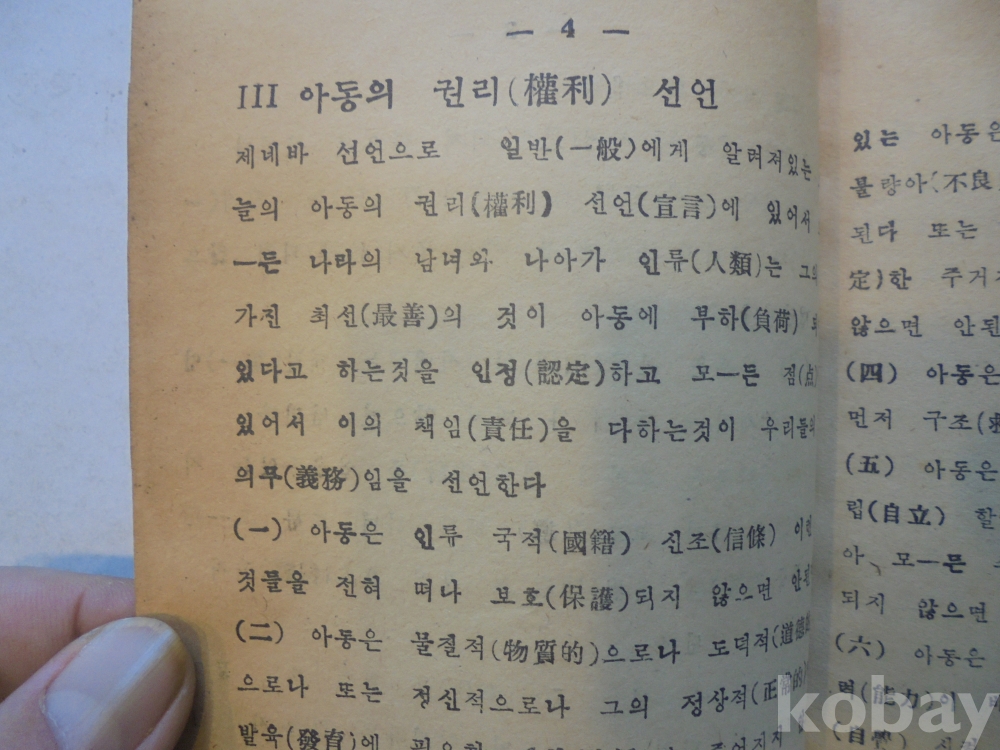 — 4 —
III 아동의 권리(權利) 선언
제네바 선언으로 일반(一般)에게 알려져있는
늘의 아동의 권리(權利) 선언(宣言)에 있어서
一든 나라의 남녀와 나아가 인류(人類)는 그의
가진 최선(最善)의 것이 아동에 부하(負荷)
있다고 하는것을 인정(認定)하고 모一든 점(点)
있어서 이의 책임(責任)을 다하는것이 우리들의
의무(義務)임을 선언한다
(一) 아동은 인류 국적(國籍) 신조(信條) 이런
것들을 전혀 떠나 보호(保護)되지 않으면 안된
(二) 아동은 물질적(物質的)으로나 도덕적(道德
으로나 또는 정신적으로나 그의 정상적(正常的)
발육(發育)에
있는 아동은
물량아(不良
된다 또는
定)한 주거
않으면 안된
(四) 아동은
먼저 구조(
(五) 아동은
립(自立) 할
아 모一든
되지 않으면
(六) 아동은
력(能力)이
(自
kobay